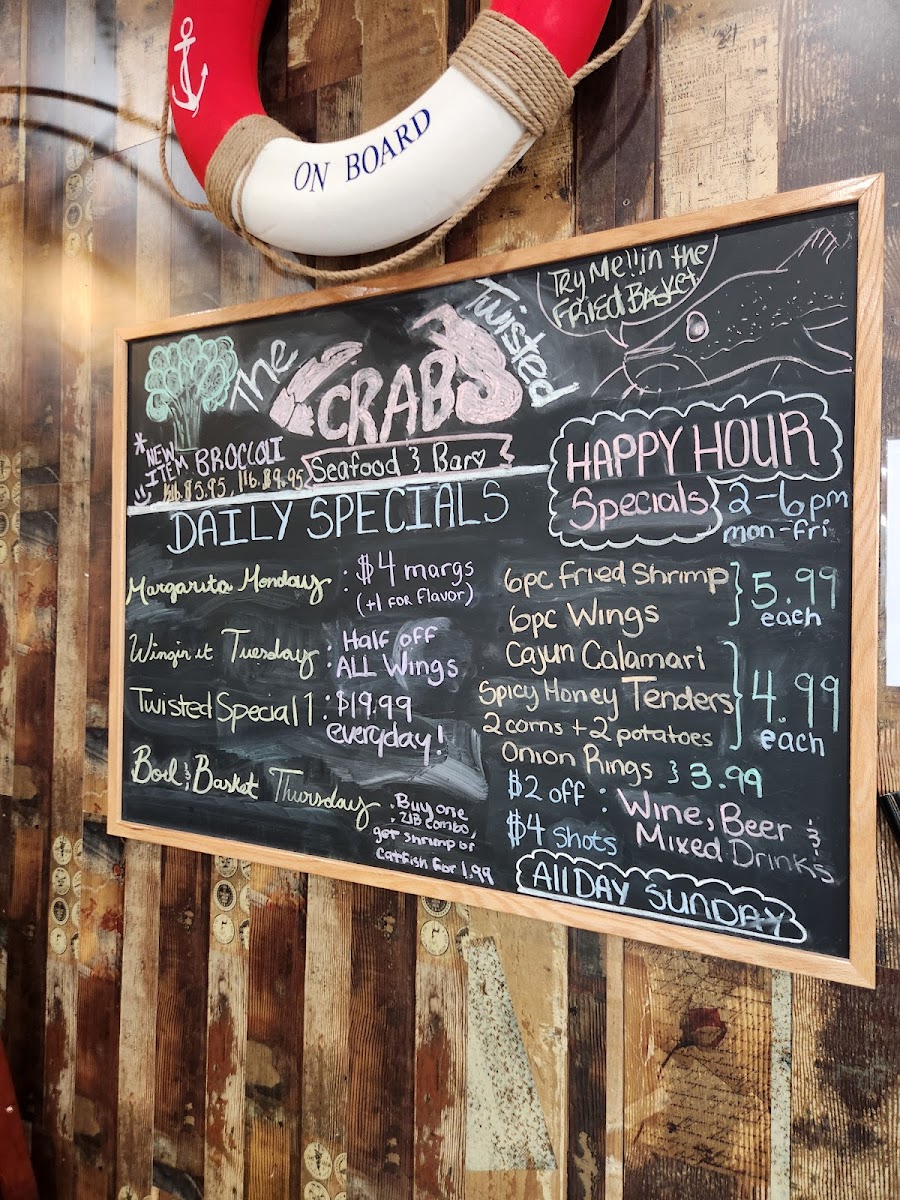 ON BOARD
Try Me!! in the
Fried Basket
The Twisted
CRAB
Seafood & Bar
*NEW
ITEM BROCCOLI
DAILY SPECIALS
Margarita Monday : $4 margs
(+1 for flavor)
Wingin it Tuesday : Half off
ALL Wings
Twisted Special 1 : $19.99
everyday!
Boil & Basket Thursday : Buy one
2LB combo,
get shrimp or
Catfish for 1.99
HAPPY HOUR
Specials 2-6pm
mon-fri
6pc Fried Shrimp
6pc Wings
5.99
each
Cajun Calamari
Spicy Honey Tenders
2 corns + 2 potatoes
4.99
each
Onion Rings } 3.99
$2 off : Wine, Beer &
Mixed Drinks
$4 shots
All DAY SUNDAY